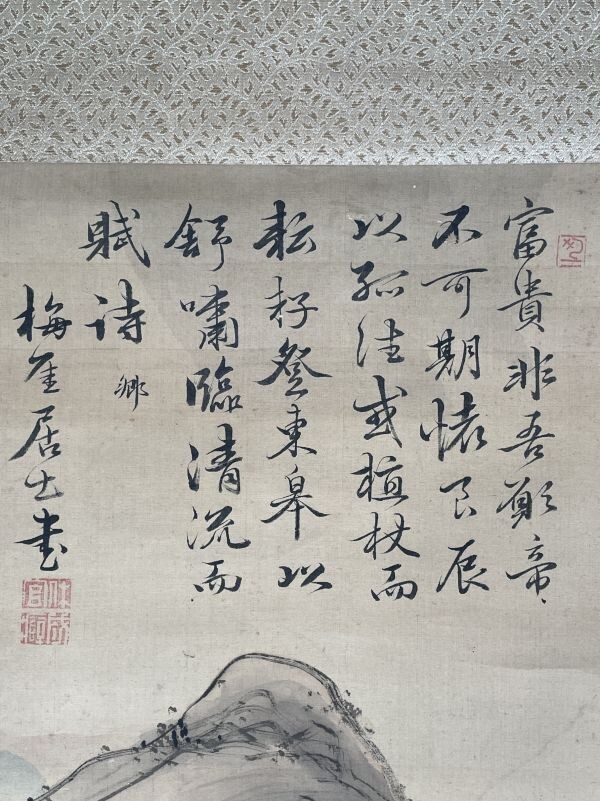 富貴非吾願帝、
不可期懐良辰
以孤往或植杖而
耘耔登東皋以
舒嘯臨清流而
賦詩 郷
梅厓居士書